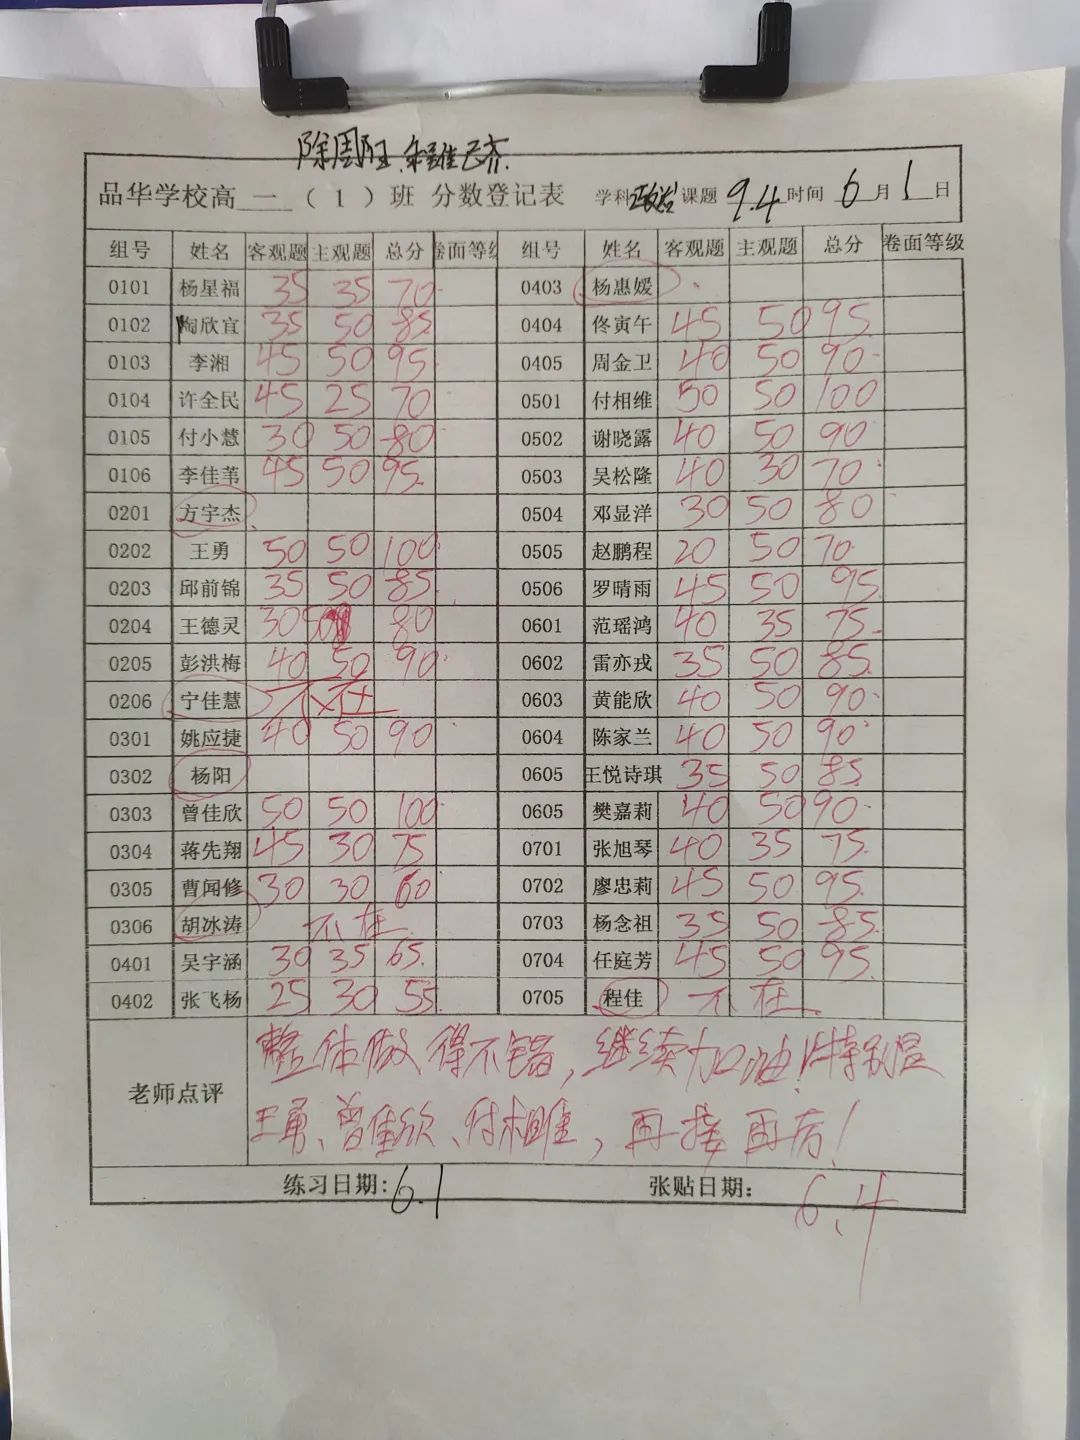 除周旺
品华学校高一（1）班 分数登记表 学科政治课题9.4时间6月1日
组号 姓名 客观题 主观题 总分 卷面等级 组号 姓名 客观题 主观题 总分 卷面等级
0101 杨星福 35 35 70 0403 杨惠媛
0102 陶欣宜 35 50 85 0404 佟寅午 45 50 95
0103 李湘 45 50 95 0405 周金卫 40 50 90
0104 许全民 45 25 70 0501 付相维 50 50 100
0105 付小慧 30 50 80 0502 谢晓露 40 50 90
0106 李佳苇 45 50 95 0503 吴松隆 40 30 70
0201 方宇杰 0504 邓显洋 30 50 80
0202 王勇 50 50 100 0505 赵鹏程 20 50 70
0203 邱前锦 35 50 85 0506 罗晴雨 45 50 95
0204 王德灵 30 50 80 0601 范瑶鸿 40 35 75
0205 彭洪梅 40 50 90 0602 雷亦戎 35 50 85
0206 宁佳慧 不在 0603 黄能欣 40 50 90
0301 姚应捷 40 50 90 0604 陈家兰 40 50 90
0302 杨阳 0605 王悦诗琪 35 50 85
0303 曾佳欣 50 50 100 0605 樊嘉莉 40 50 90
0304 蒋先翔 45 30 75 0701 张旭琴 40 35 75
0305 曹闻修 30 30 60 0702 廖忠莉 45 50 95
0306 胡冰涛 不在 0703 杨念祖 35 50 85
0401 吴宇涵 30 35 65 0704 任庭芳 45 50 95
0402 张飞杨 25 30 55 0705 程佳 不在
老师点评 整体做得不错，继续加油！特别是
王勇、曾佳欣、付相维，再接再厉！
练习日期：6.1 张贴日期：6.4